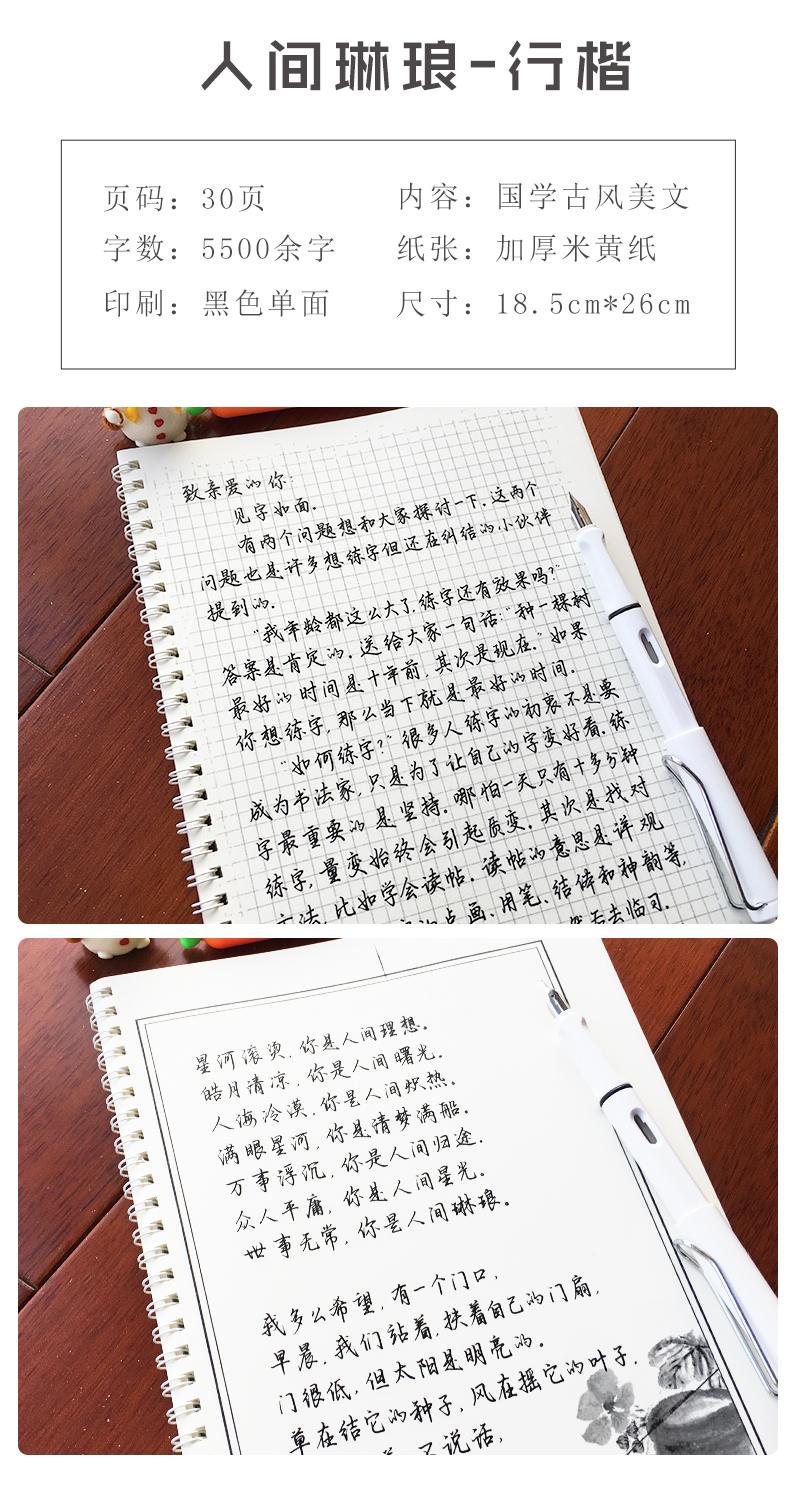 人间琳琅-行楷
页码：30页
内容：国学古风美文
字数：5500余字
纸张：加厚米黄纸
印刷：黑色单面
尺寸：18.5cm*26cm
致亲爱的你：
见字如面.
有两个问题想和大家探讨一下.这两个
问题也是许多想练字但还在纠结的小伙伴
提到的.
"我年龄都这么大了,练字还有效果吗?"
答案是肯定的.送给大家一句话:"种一棵树
最好的时间是十年前,其次是现在."如果
你想练字,那么当下就是最好的时间.
"如何练字?"很多人练字的初衷不是要
成为书法家,只是为了让自己的字变好看.练
字最重要的是坚持.哪怕一天只有十多分钟
练字,量变始终会引起质变.其次是找对
方法.比如学会读帖.读帖的意思是详观
点画、用笔、结体和神韵等,
然后去临习.
星河滚烫,你是人间理想。
皓月清凉,你是人间曙光。
人海冷漠,你是人间炽热。
满眼星河,你是清梦满船。
万事浮沉,你是人间归途.
众人平庸,你是人间星光。
世事无常,你是人间琳琅。
我多么希望,有一个门口,
早晨,我们站着,扶着自己的门扇,
门很低,但太阳是明亮的。
草在结它的种子,风在摇它的叶子.
不说话,